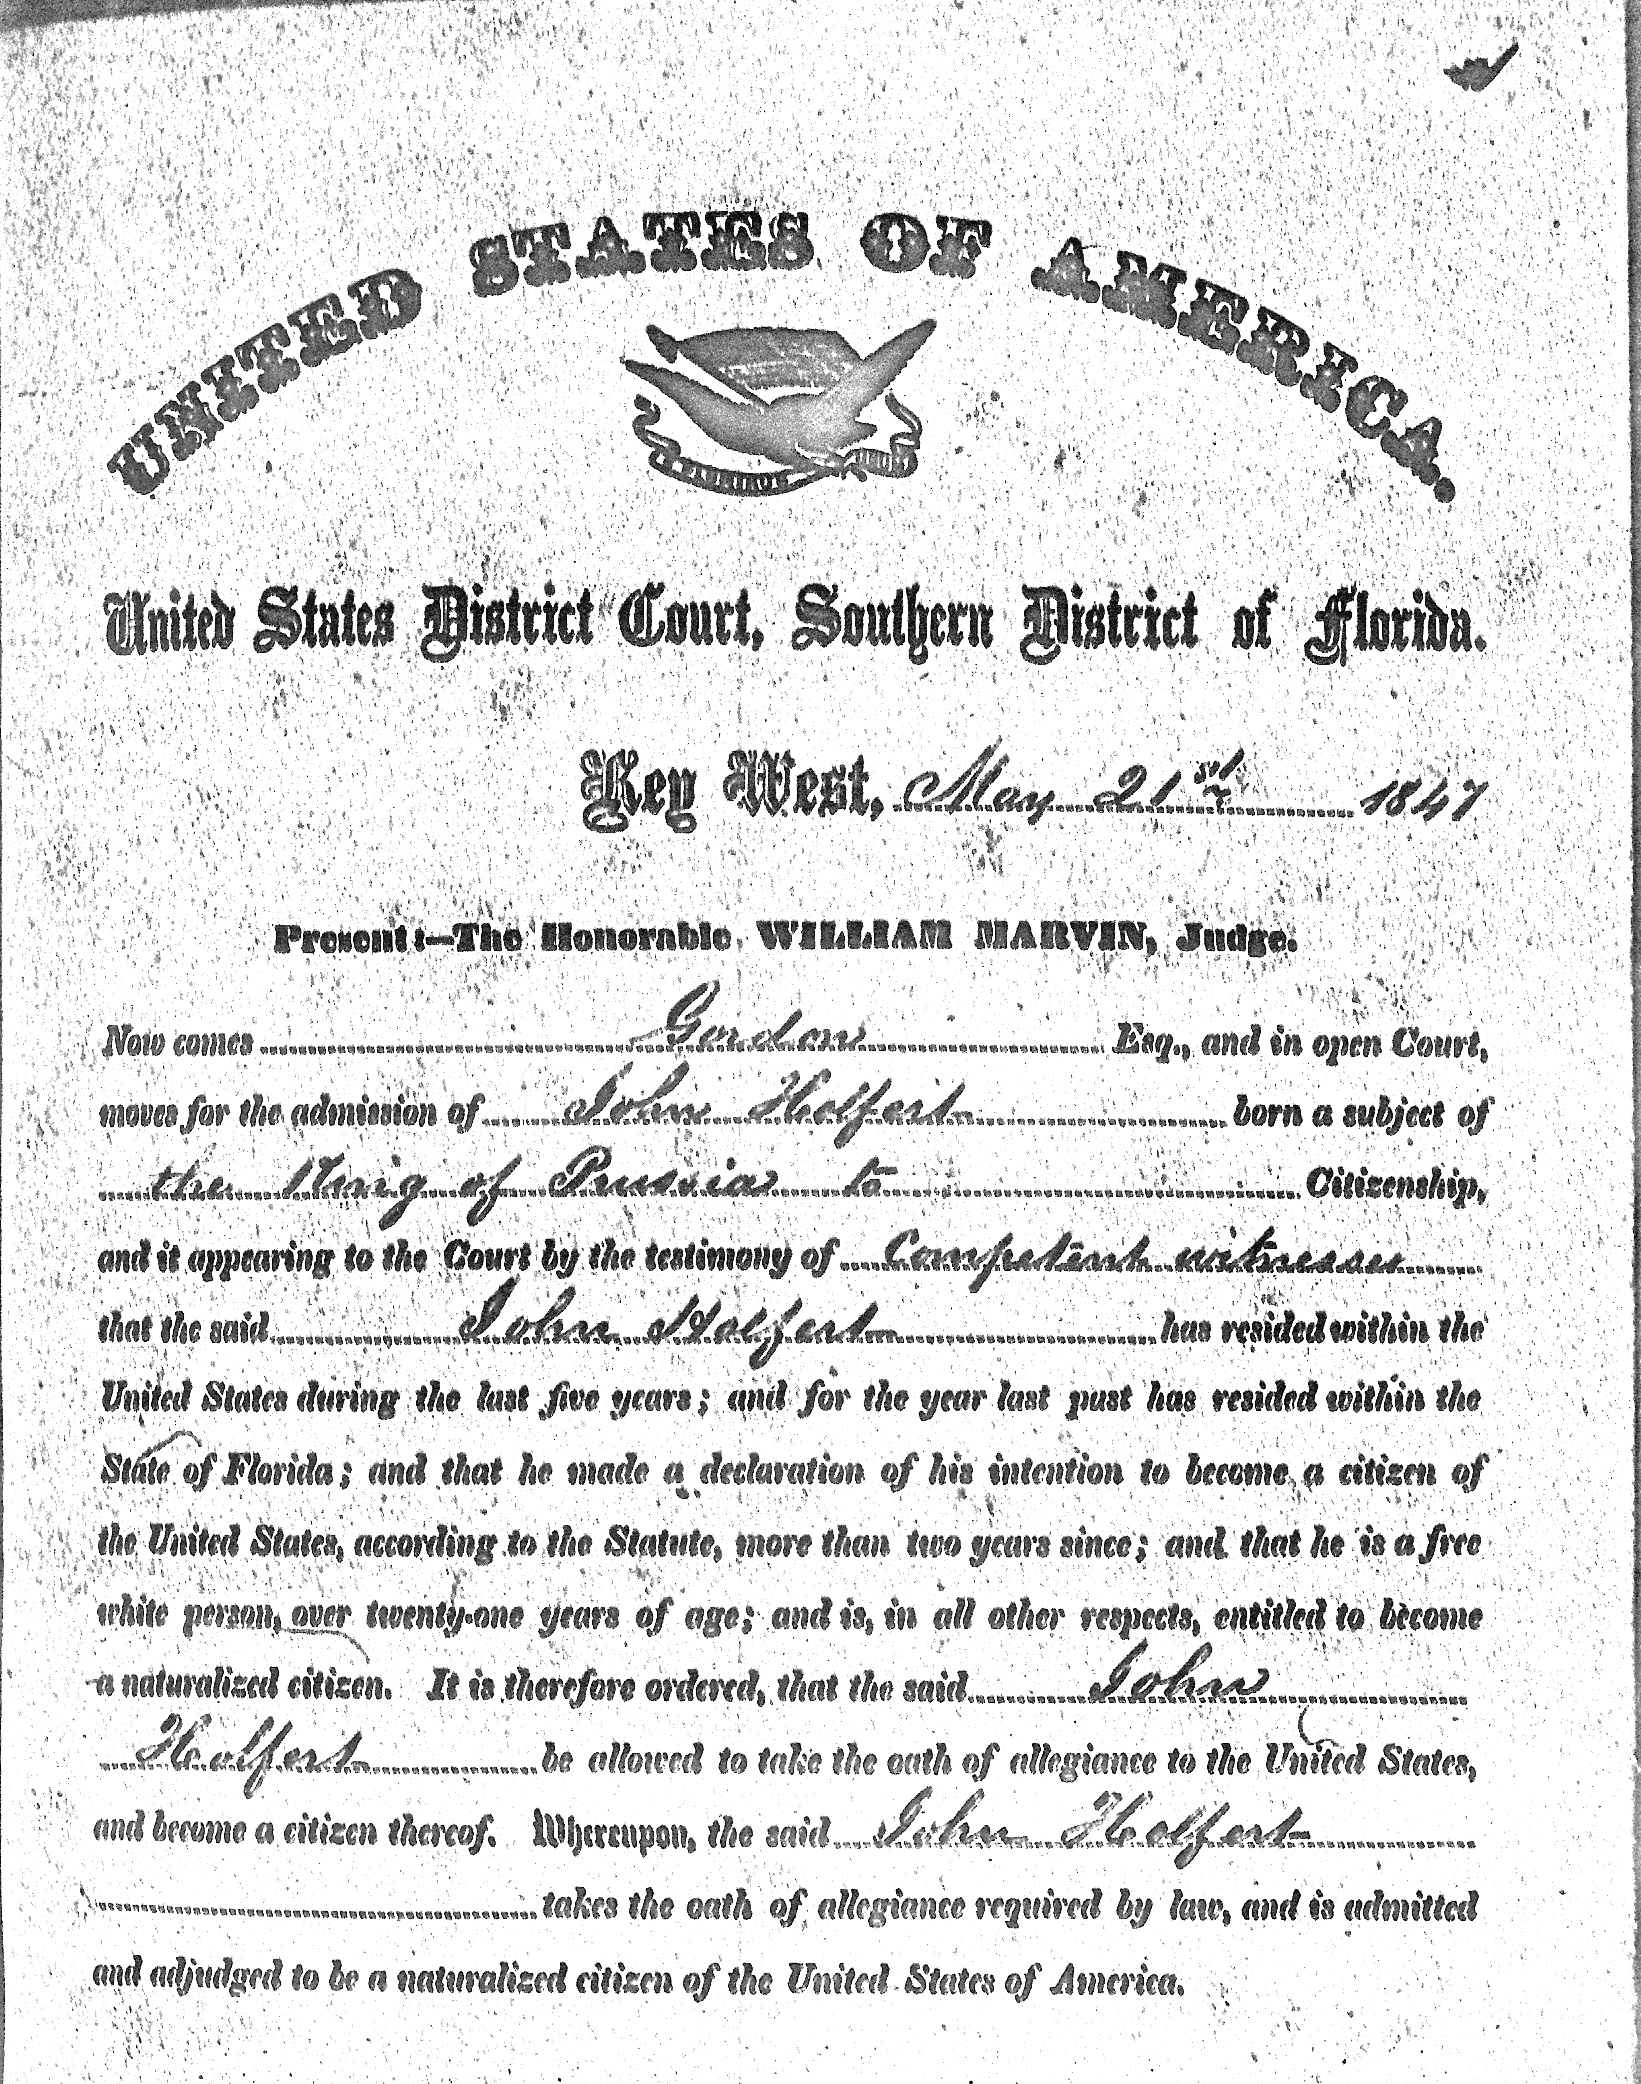 UNITED STATES OF AMERICA.
United States District Court, Southern District of Florida.
Key West, May 21st 1847
Present:—The Honorable WILLIAM MARVIN, Judge.
Now comes Gordon Esq., and in open Court,
moves for the admission of John Holfert born a subject of
the King of Prussia to Citizenship,
and it appearing to the Court by the testimony of Competent witnesses
that the said John Holfert has resided within the
United States during the last five years; and for the year last past has resided within the
State of Florida; and that he made a declaration of his intention to become a citizen of
the United States, according to the Statute, more than two years since; and that he is a free
white person, over twenty-one years of age; and is, in all other respects, entitled to become
a naturalized citizen. It is therefore ordered, that the said John
Holfert be allowed to take the oath of allegiance to the United States,
and become a citizen thereof. Whereupon, the said John Holfert
takes the oath of allegiance required by law, and is admitted
and adjudged to be a naturalized citizen of the United States of America.